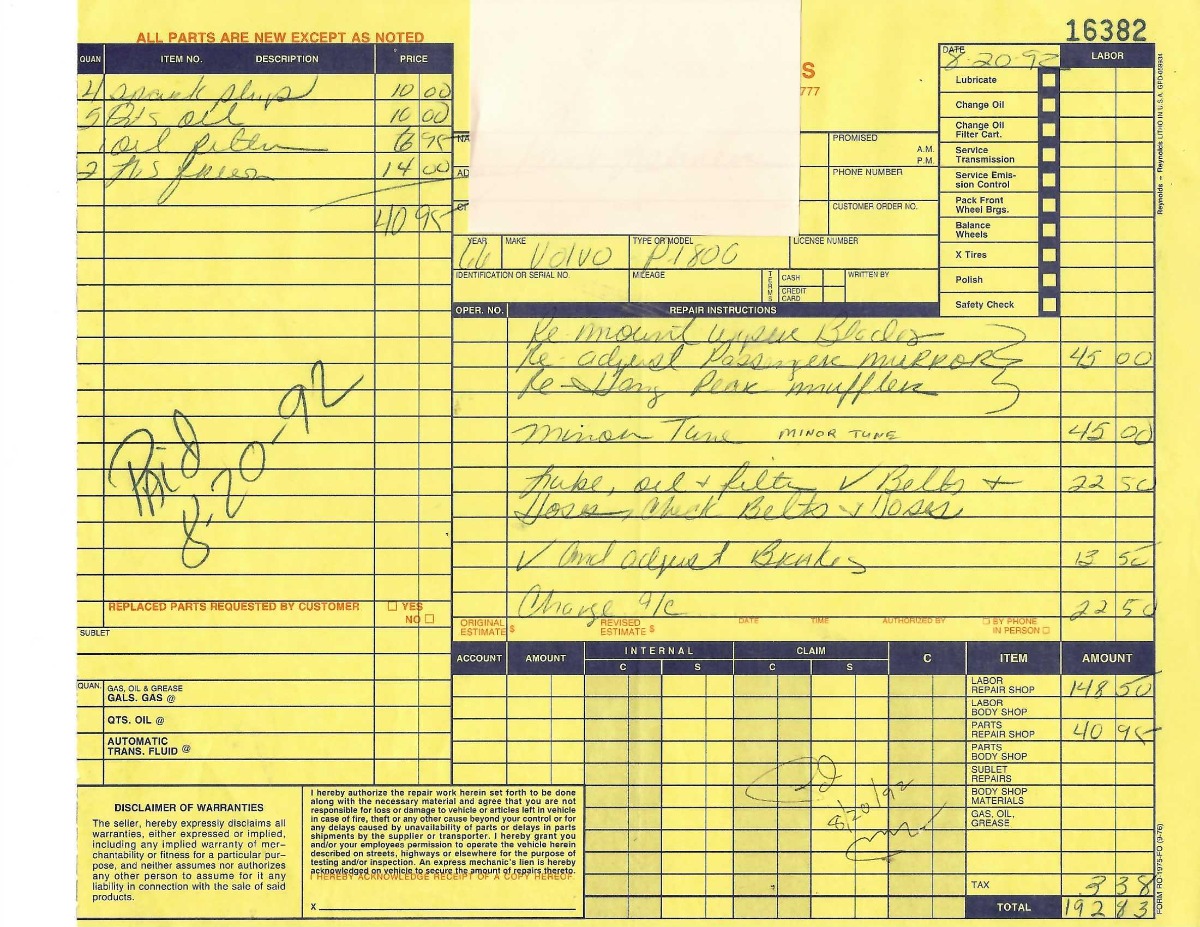 ALL PARTS ARE NEW EXCEPT AS NOTED
16382
S
777
QUAN ITEM NO. DESCRIPTION PRICE
4 spark plugs 10 00
5 Qts oil 10 00
1 oil filter 6 95
2 lbs freon 14 00
40 95
DATE 8-20-92 LABOR
Lubricate
Change Oil
Change Oil
Filter Cart.
Service
Transmission
Service Emis-
sion Control
Pack Front
Wheel Brgs.
Balance
Wheels
X Tires
Polish
Safety Check
NA
AD
PROMISED
A.M.
P.M.
PHONE NUMBER
CUSTOMER ORDER NO.
YEAR MAKE TYPE OR MODEL LICENSE NUMBER
66 Volvo P1800
IDENTIFICATION OR SERIAL NO. MILEAGE TERMS CASH CREDIT CARD WRITTEN BY
OPER. NO. REPAIR INSTRUCTIONS
Re-mount wiper Blades
Re-adjust Passenger MIRROR 45 00
Re-Hang Rear muffler
Minor Tune MINOR TUNE 45 00
Lube, oil + filter ✓ Belts + 22 50
Hoses, Check Belts + Hoses
✓ And adjust Brakes 13 50
Charge A/C 22 50
PAid
8-20-92
REPLACED PARTS REQUESTED BY CUSTOMER ☐ YES
NO ☐
ORIGINAL ESTIMATE $ REVISED ESTIMATE $ DATE TIME AUTHORIZED BY ☐ BY PHONE
IN PERSON ☐
SUBLET
ACCOUNT AMOUNT INTERNAL C S CLAIM C S C ITEM AMOUNT
QUAN. GAS, OIL & GREASE
GALS. GAS @
QTS. OIL @
AUTOMATIC
TRANS. FLUID @
LABOR
REPAIR SHOP 148 50
LABOR
BODY SHOP
PARTS
REPAIR SHOP 40 95
PARTS
BODY SHOP
SUBLET
REPAIRS
BODY SHOP
MATERIALS
GAS, OIL,
GREASE
8/20/92
TAX 3 38
TOTAL 192 83
DISCLAIMER OF WARRANTIES
The seller, hereby expressly disclaims all
warranties, either expressed or implied,
including any implied warranty of mer-
chantability or fitness for a particular pur-
pose, and neither assumes nor authorizes
any other person to assume for it any
liability in connection with the sale of said
products.
I hereby authorize the repair work herein set forth to be done
along with the necessary material and agree that you are not
responsible for loss or damage to vehicle or articles left in vehicle
in case of fire, theft or any other cause beyond your control or for
any delays caused by unavailability of parts or delays in parts
shipments by the supplier or transporter. I hereby grant you
and/or your employees permission to operate the vehicle herein
described on streets, highways or elsewhere for the purpose of
testing and/or inspection. An express mechanic's lien is hereby
acknowledged on vehicle to secure the amount of repairs thereto.
I HEREBY ACKNOWLEDGE RECEIPT OF A COPY HEREOF.
X
FORM RO-1975-FO (9-76)